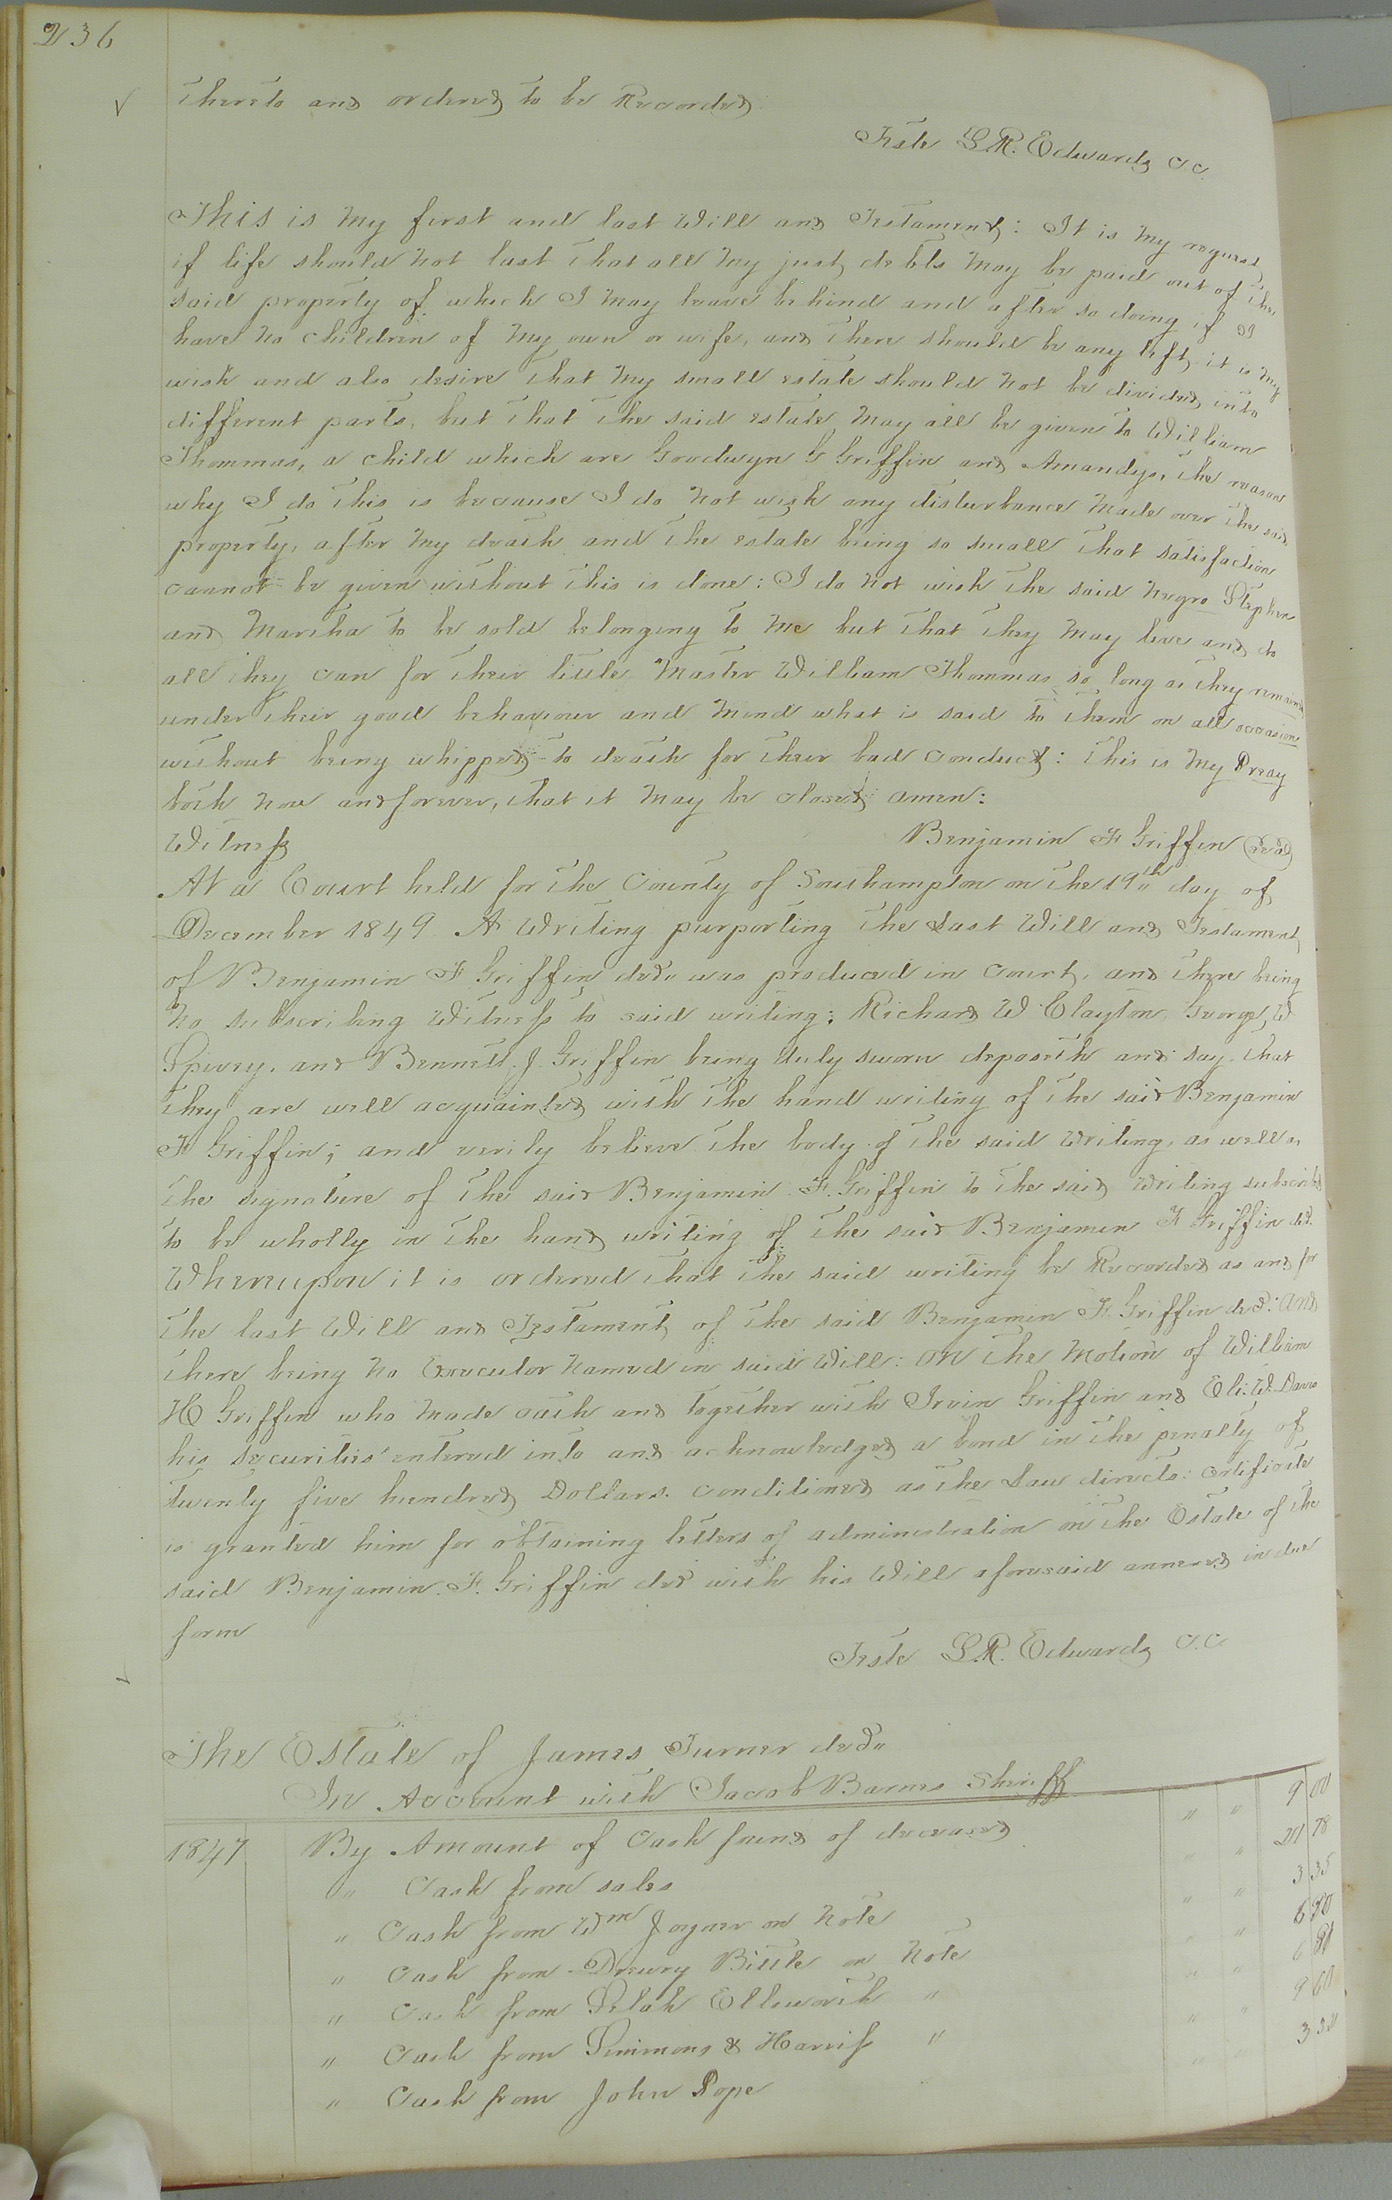 236
thereto and ordered to be Recorded
Teste L. R. Edwards C.C.
This is my first and last Will and Testament: It is my request
if life should not last that all my just debts may be paid out of the
said property of which I may leave behind and after so doing if I
have no children of my own or wife, and there should be any left, it is my
wish and also desire that my small estate should not be divided into
different parts, but that the said estate may all be given to William
Thommas, a child which are Goodwyn G Griffin and Amandys, the reason
why I do this is because I do not wish any disturbance made over the said
property, after my death and the estate being so small that satisfaction
cannot be given without this is done: I do not wish the said negro Stephen
and Martha to be sold belonging to me but that they may live and do
all they can for their little Master William Thommas so long as they remain
under their good behaviour and mind what is said to them on all occasions
without being whipped to death for their bad conduct: this is my Pray
both now and forever, that it may be closed amen:
Witness
Benjamin F Griffin (seal)
At a Court held for the County of Southampton on the 19th day of
December 1849. A Writing purporting the Last Will and Testament
of Benjamin F Griffin decd was produced in court, and there being
no subscribing Witness to said writing; Richard W Clayton, George W
Spivey, and Bennett J. Griffin being duly sworn deposeth and say that
they are well acquainted with the hand writing of the said Benjamin
F Griffin; and verily believe the body of the said writing, as well as
the signature of the said Benjamin F. Griffin to the said writing subscribed
to be wholly in the hand writing of the said Benjamin F Griffin decd.
Whereupon it is ordered that the said writing be Recorded as and for
the last Will and Testament of the said Benjamin F. Griffin decd: And
there being no Executor named in said Will: On the motion of William
H Griffin who made oath and together with Irvin Griffin and Eli W. Davis
his securities entered into and acknowledged a bond in the penalty of
twenty five hundred Dollars conditioned as the Law directs: Certificate
is granted him for obtaining letters of administration on the Estate of the
said Benjamin F. Griffin decd with his Will aforesaid annexed in due
form
Teste L. R. Edwards C.C
The Estate of James Turner decd
In Account with Jacob Barnes Sheriff
1847 By Amount of Cash found of deceased " " 9 00
" Cash from sales " " 78
" Cash from Wm Joyner on Note " " 3 35
" Cash from Drewry Bittle on Note " " 6
" Cash from Selah Ellsworth " " " 6
" Cash from Simmons & Harriss " " " 9 60
" Cash from John Pope " " 3